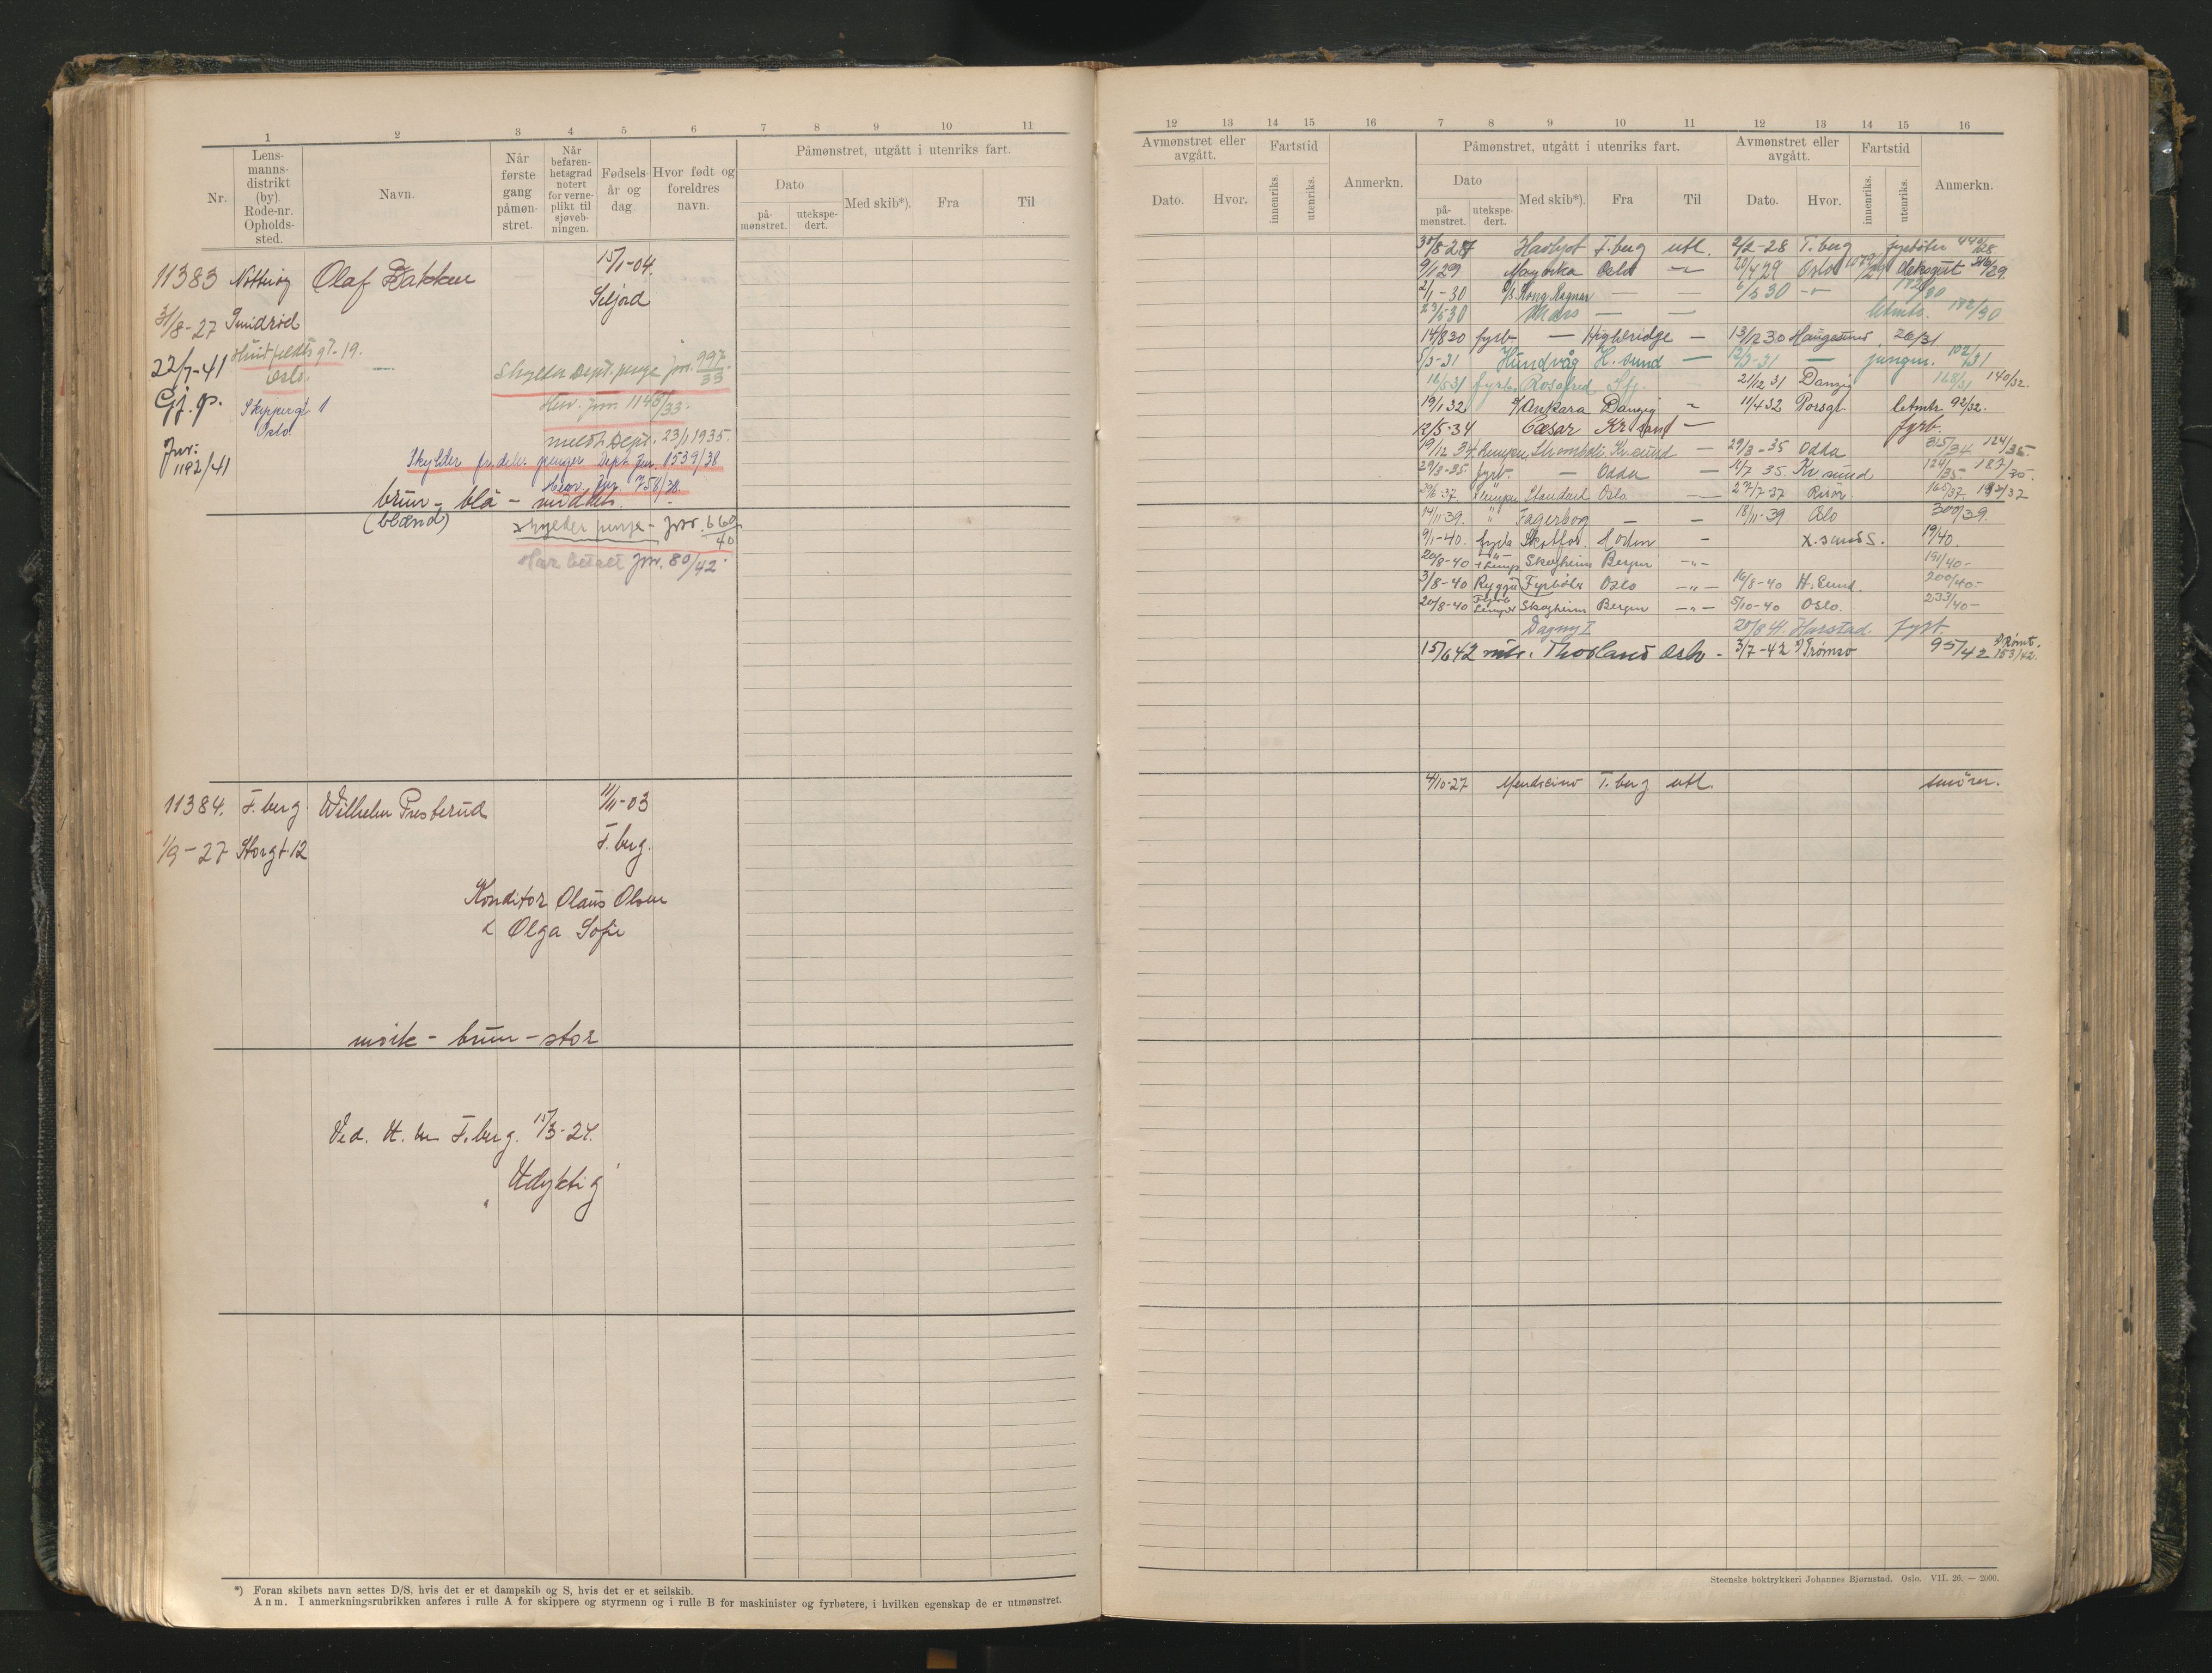 1 2 3 4 5 6 7 8 9 10 11
Nr.
Lens-
manns-
distrikt
(by).
Rode-nr.
Opholds-
sted.
Navn.
Når
første
gang
påmøn-
stret.
Når
befaren-
hetsgrad
notert
for verne-
plikt til
sjøveb-
ningen.
Fødsels-
år og
dag
Hvor født og
foreldres
navn.
Påmønstret, utgått i utenriks fart.
Dato
på-
mønstret.
utekspe-
dert.
Med skib*).
Fra
Til
11383 Nøtterøy Olaf Bakken 15/1-04.
Seljord
31/8-27 Smidrød
22/7-41 Huitfeldts gt. 19.
Oslo.
Gj. p. Skippergt 1
Oslo
Jnr.
1192/41
Skylder Dept. penge jnr. 997/33.
Henv. Jnr 1146/33.
meldt Dept. 23/1 1935.
Skylder fr. debr. penger Dept. Jnr. 1539/38
Henv. Jnr. 758/38.
brun - blå - middels.
(blond)
skylder penge - jnr. 660/40
Har betalt jnr. 80/42.
11384. T.berg Wilhelm Presterud 11/11-03
1/9-27 Storgt. 12 T.berg.
Konditor Olaus Olsen
& Olga Sofie
mørk - brun - stor
Ved. U. m T.berg. 15/3-24.
Udyktig
*) Foran skibets navn settes D/S, hvis det er et dampskib og S, hvis det er et seilskib.
Anm. I anmerkningsrubrikken anføres i rulle A for skippere og styrmenn og i rulle B for maskinister og fyrbøtere, i hvilken egenskap de er utmønstret.
12 13 14 15 16 7 8 9 10 11 12 13 14 15 16
Avmønstret eller
avgått.
Dato.
Hvor.
Fartstid
innenriks.
utenriks.
Anmerkn.
Påmønstret, utgått i utenriks fart.
Dato
på-
mønstret.
utekspe-
dert.
Med skib*).
Fra
Til
Avmønstret eller
avgått.
Dato.
Hvor.
Fartstid
innenriks.
utenriks.
Anmerkn.
30/8-27 T.berg utl. 2/2-28 T.berg fyrbøter 442/28
9/1 29 Oslo — 20/4 29 Oslo deksgut 316/29
2/1-30 D/S Kong Ragnar — — 6/5 30
23/5 30 Mars — — letmtr. 182/30
14/8 30 fyrb — Highbridge — 13/12 30 Haugesund. 20/31
5/3-31 Hundvåg H.sund — 12/3-31 — jungm. 102/31
16/5 31 fyrb. Rosafred Sfj. 21/12 31 Danzig 168/31 140/32.
19/1 32 D/S Ankara Danzig 11/4 32 Porsgr. letmtr 92/32.
12/5-34 Cæsar Kr.sand — fyrb.
19/12 34 Lemper Stromboli Kr.sund — 29/3-35 Odda 315/34 124/35.
29/3-35. fyrb. — Odda — 14/7 35. Kr sund 124/35. 187/35.
Lemper Standard Oslo — 27/7-37 Risør. 165/37 192/37
14/11 39. " Fagerbog — — 18/11-39 Oslo 300/39.
9/1-40. fyrb Skotfos. Horten — K.sund S. 19/40.
20/8-40 Skogheim Bergen -"- 191/40-
3/8-40 Rygja Fyrbøter Oslo -"- 16/8-40 H.Sund. 200/40-
20/8-40 Fyrb. Lemper Skogheim Bergen -"- 5/10-40 Oslo. 233/40-
Dagny I 20/8 41. Harstad. fyrb.
15/6 42 mtr. Thorland Oslo - 3/7-42 Tromsø 95/42 153/42.
4/10-27 Mendocino T.berg utl. smører.
Steenske boktrykkeri Johannes Bjørnstad. Oslo. VII. 26. — 2000.